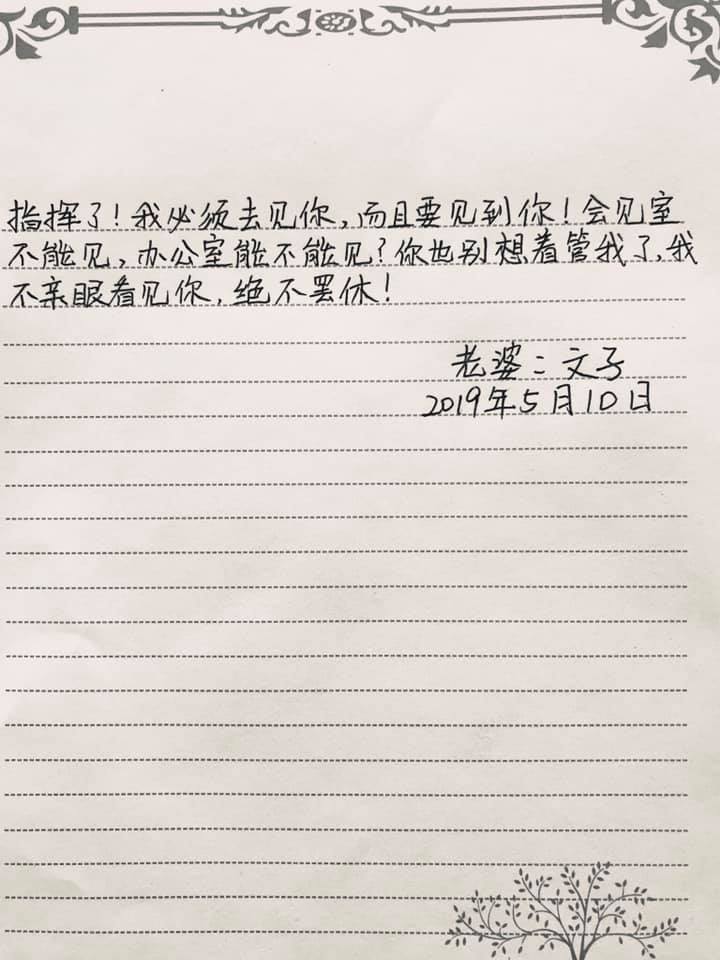 指挥了！我必须去见你，而且要见到你！会见室
不能见，办公室能不能见？你也别想着管我了，我
不亲眼看见你，绝不罢休！
老婆：文子
2019年5月10日